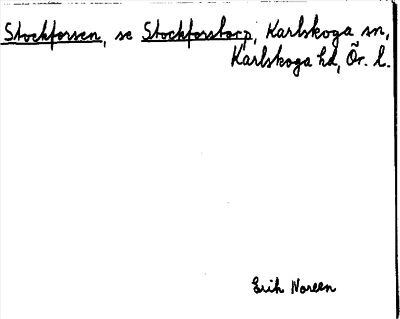 Stockforsen, se Stockforstorp, Karlskoga sn,
Karlskoga hd, Ör. l.
Erik Noreen